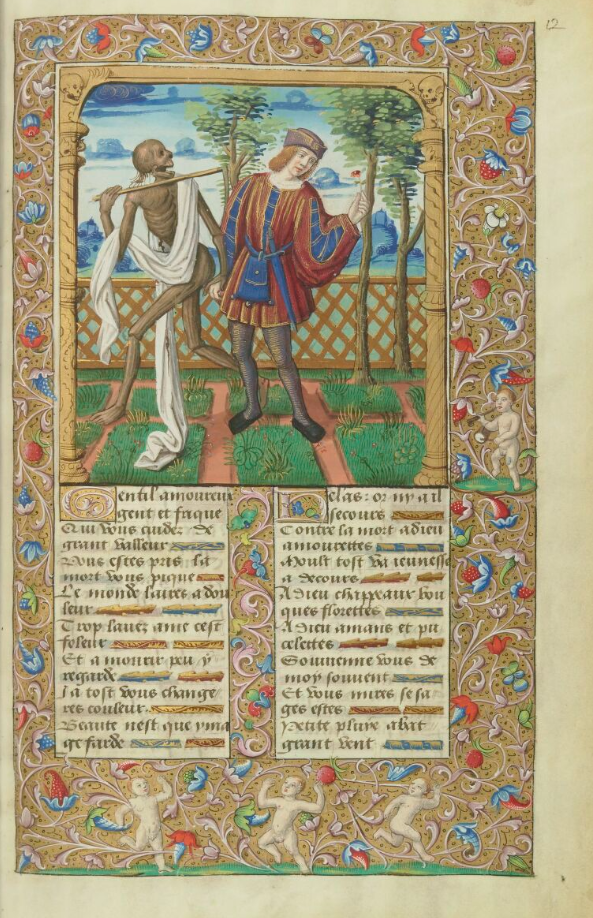 12
Gentil amoureux
gent et frique
Qui vous cuidez de
grant valleur
Vous estes pris la
mort vous pique
Le monde lairez a dou
leur
Trop lavez ame cest
foleur
Et a mourir peu y
regarde
Ja tost vous change
res couleur
Beaute nest que yma
ge farde
Helas: or ny a il
secours
Contre la mort adieu
amourettes
Moult tost va ieunesse
a decours
Adieu chappeaux bou
ques florettes
Adieu amans et pu
celettes
Souvienne vous de
moy souvent
Et vous mires se sa
ges estes
Petite pluye abat
grant vent